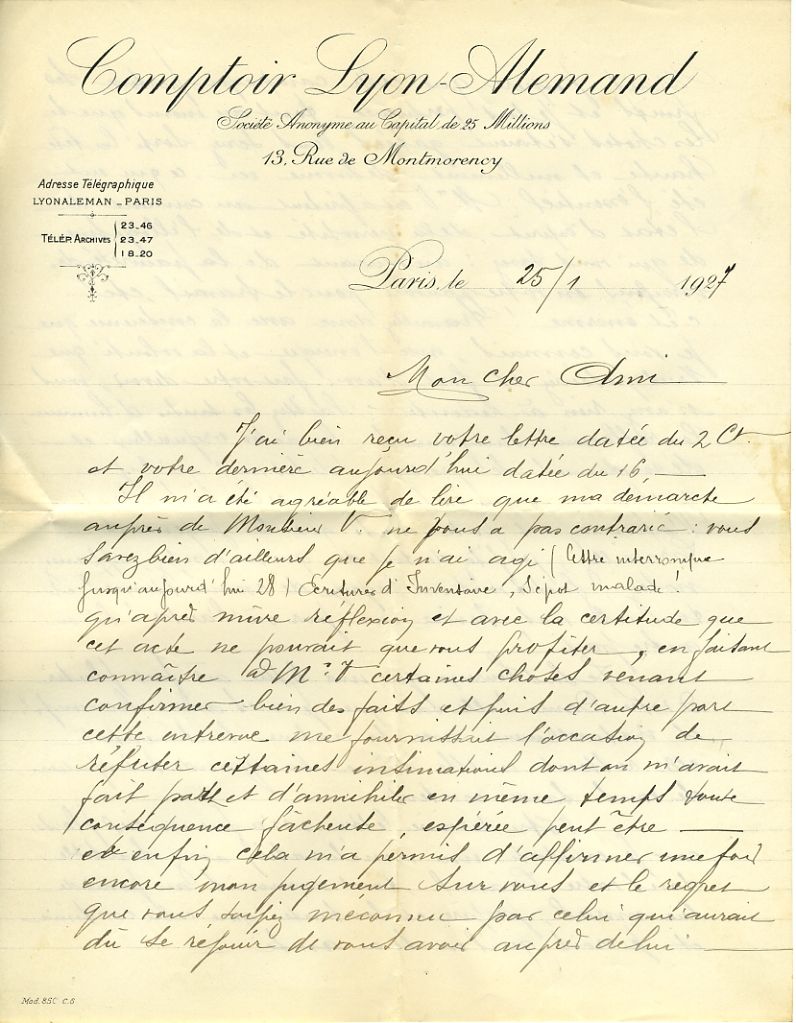 Comptoir Lyon-Alemand
Société Anonyme au Capital de 25 Millions
13, Rue de Montmorency
Adresse Télégraphique
LYONALEMAN - PARIS
TÉLÉP. ARCHIVES 23-46
23-47
18-20
Paris, le 25/1 1927
Mon cher Ami
J'ai bien reçu votre lettre datée du 2 Ct
et votre dernière aujourd'hui datée du 16, —
Il m'a été agréable de lire que ma démarche
auprès de Monsieur V. ne vous a pas contrarié : vous
savez bien d'ailleurs que je n'ai agi (lettre interrompue
jusqu'aujourd'hui 28) Ecritures d'Inventaire, malade !
qu'après mûre réflexion et avec la certitude que
cet acte ne pouvait que vous profiter, en faisant
connaître à Mr V certaines choses venant
confirmer bien des faits et puis d'autre part
cette entrevue me fournissait l'occasion de
réfuter certaines insinuations dont on m'avait
fait part et d'annihiler en même temps toute
conséquence fâcheuse, espérée peut être —
et enfin cela m'a permis d'affirmer une fois
encore mon jugement sur vous et le regret
que vous soyez méconnu par celui qui aurait
dû se réjouir de vous avoir auprès de lui —
Mod. 85C C.G